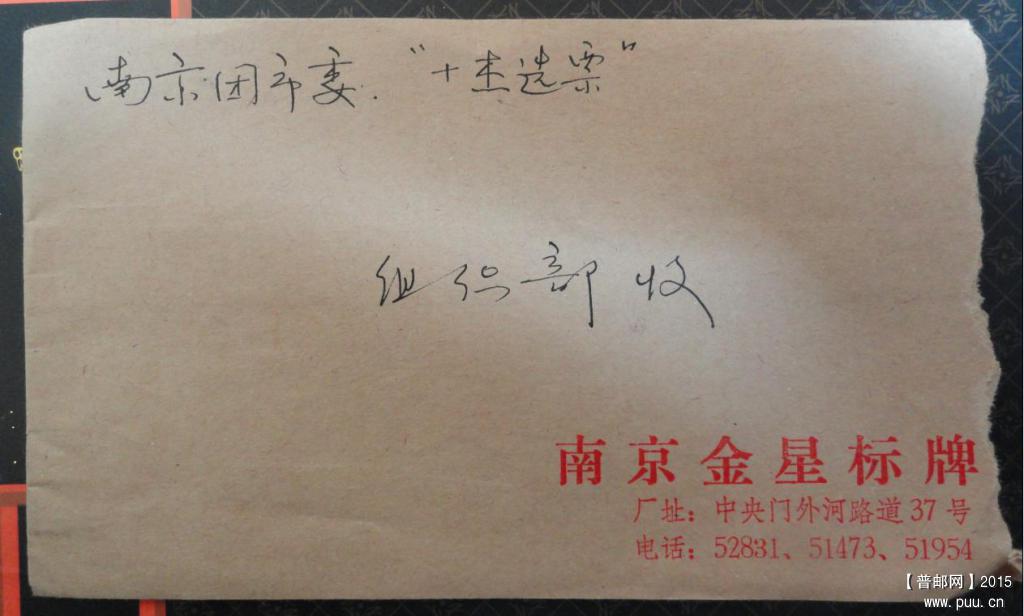 南京团市委.“十杰选票”
组织部 收
南京金星标牌
厂址：中央门外河路道37号
电话：52831、51473、51954
【普邮网】2015
www.puu.cn